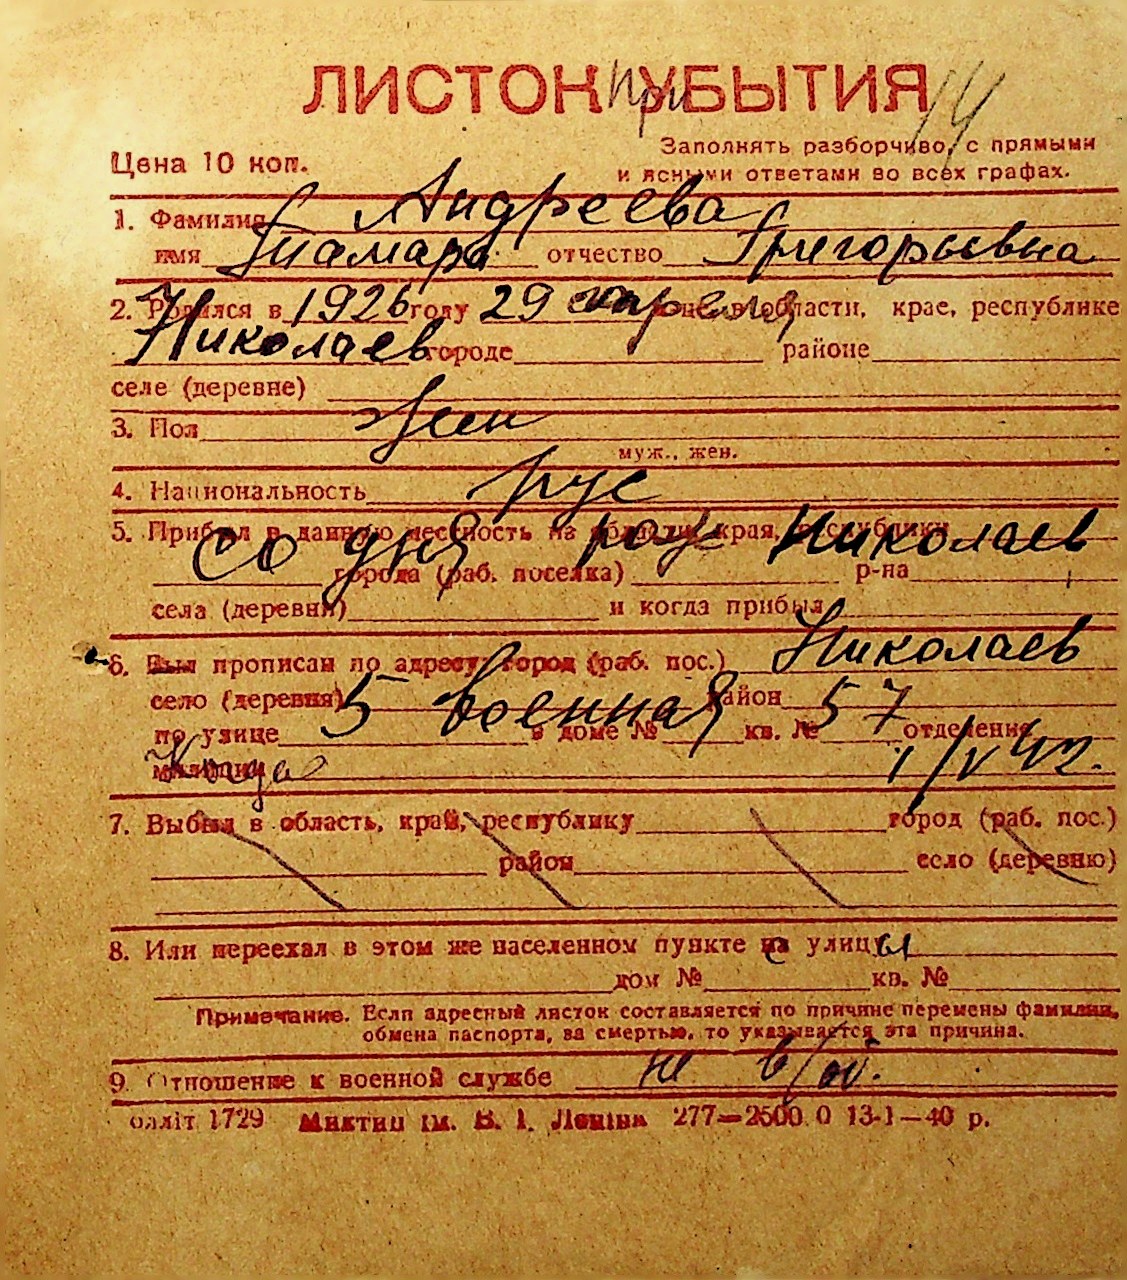 ЛИСТОК при УБЫТИЯ 14
Цена 10 коп.
Заполнять разборчиво, с прямыми
и ясными ответами во всех графах.
1. Фамилия Андреева
имя Тамара отчество Григорьевна
2. Родился в 1926 году 29 апреля области, крае, республике
Николаев городе районе
селе (деревне)
3. Пол жен
муж., жен.
4. Национальность рус
5. Прибыл в данную местность из области, края, республики
со дня рож Николаев
города (раб. поселка) р-на
села (деревни) и когда прибыл
6. Был прописан по адресу город (раб. пос.) Николаев
село (деревня) район
по улице 5 Военная в доме № 57 кв. № отделения
милиции 1/V 42.
7. Выбыл в область, край, республику город (раб. пос.)
район село (деревню)
8. Или переехал в этом же населенном пункте с улицы
дом № кв. №
Примечание. Если адресный листок составляется по причине перемены фамилии,
обмена паспорта, за смертью, то указывается эта причина.
9. Отношение к военной службе н в/об.
облліт 1729 Миктип ім. В. І. Леніна 277—2500 0 13-1—40 р.